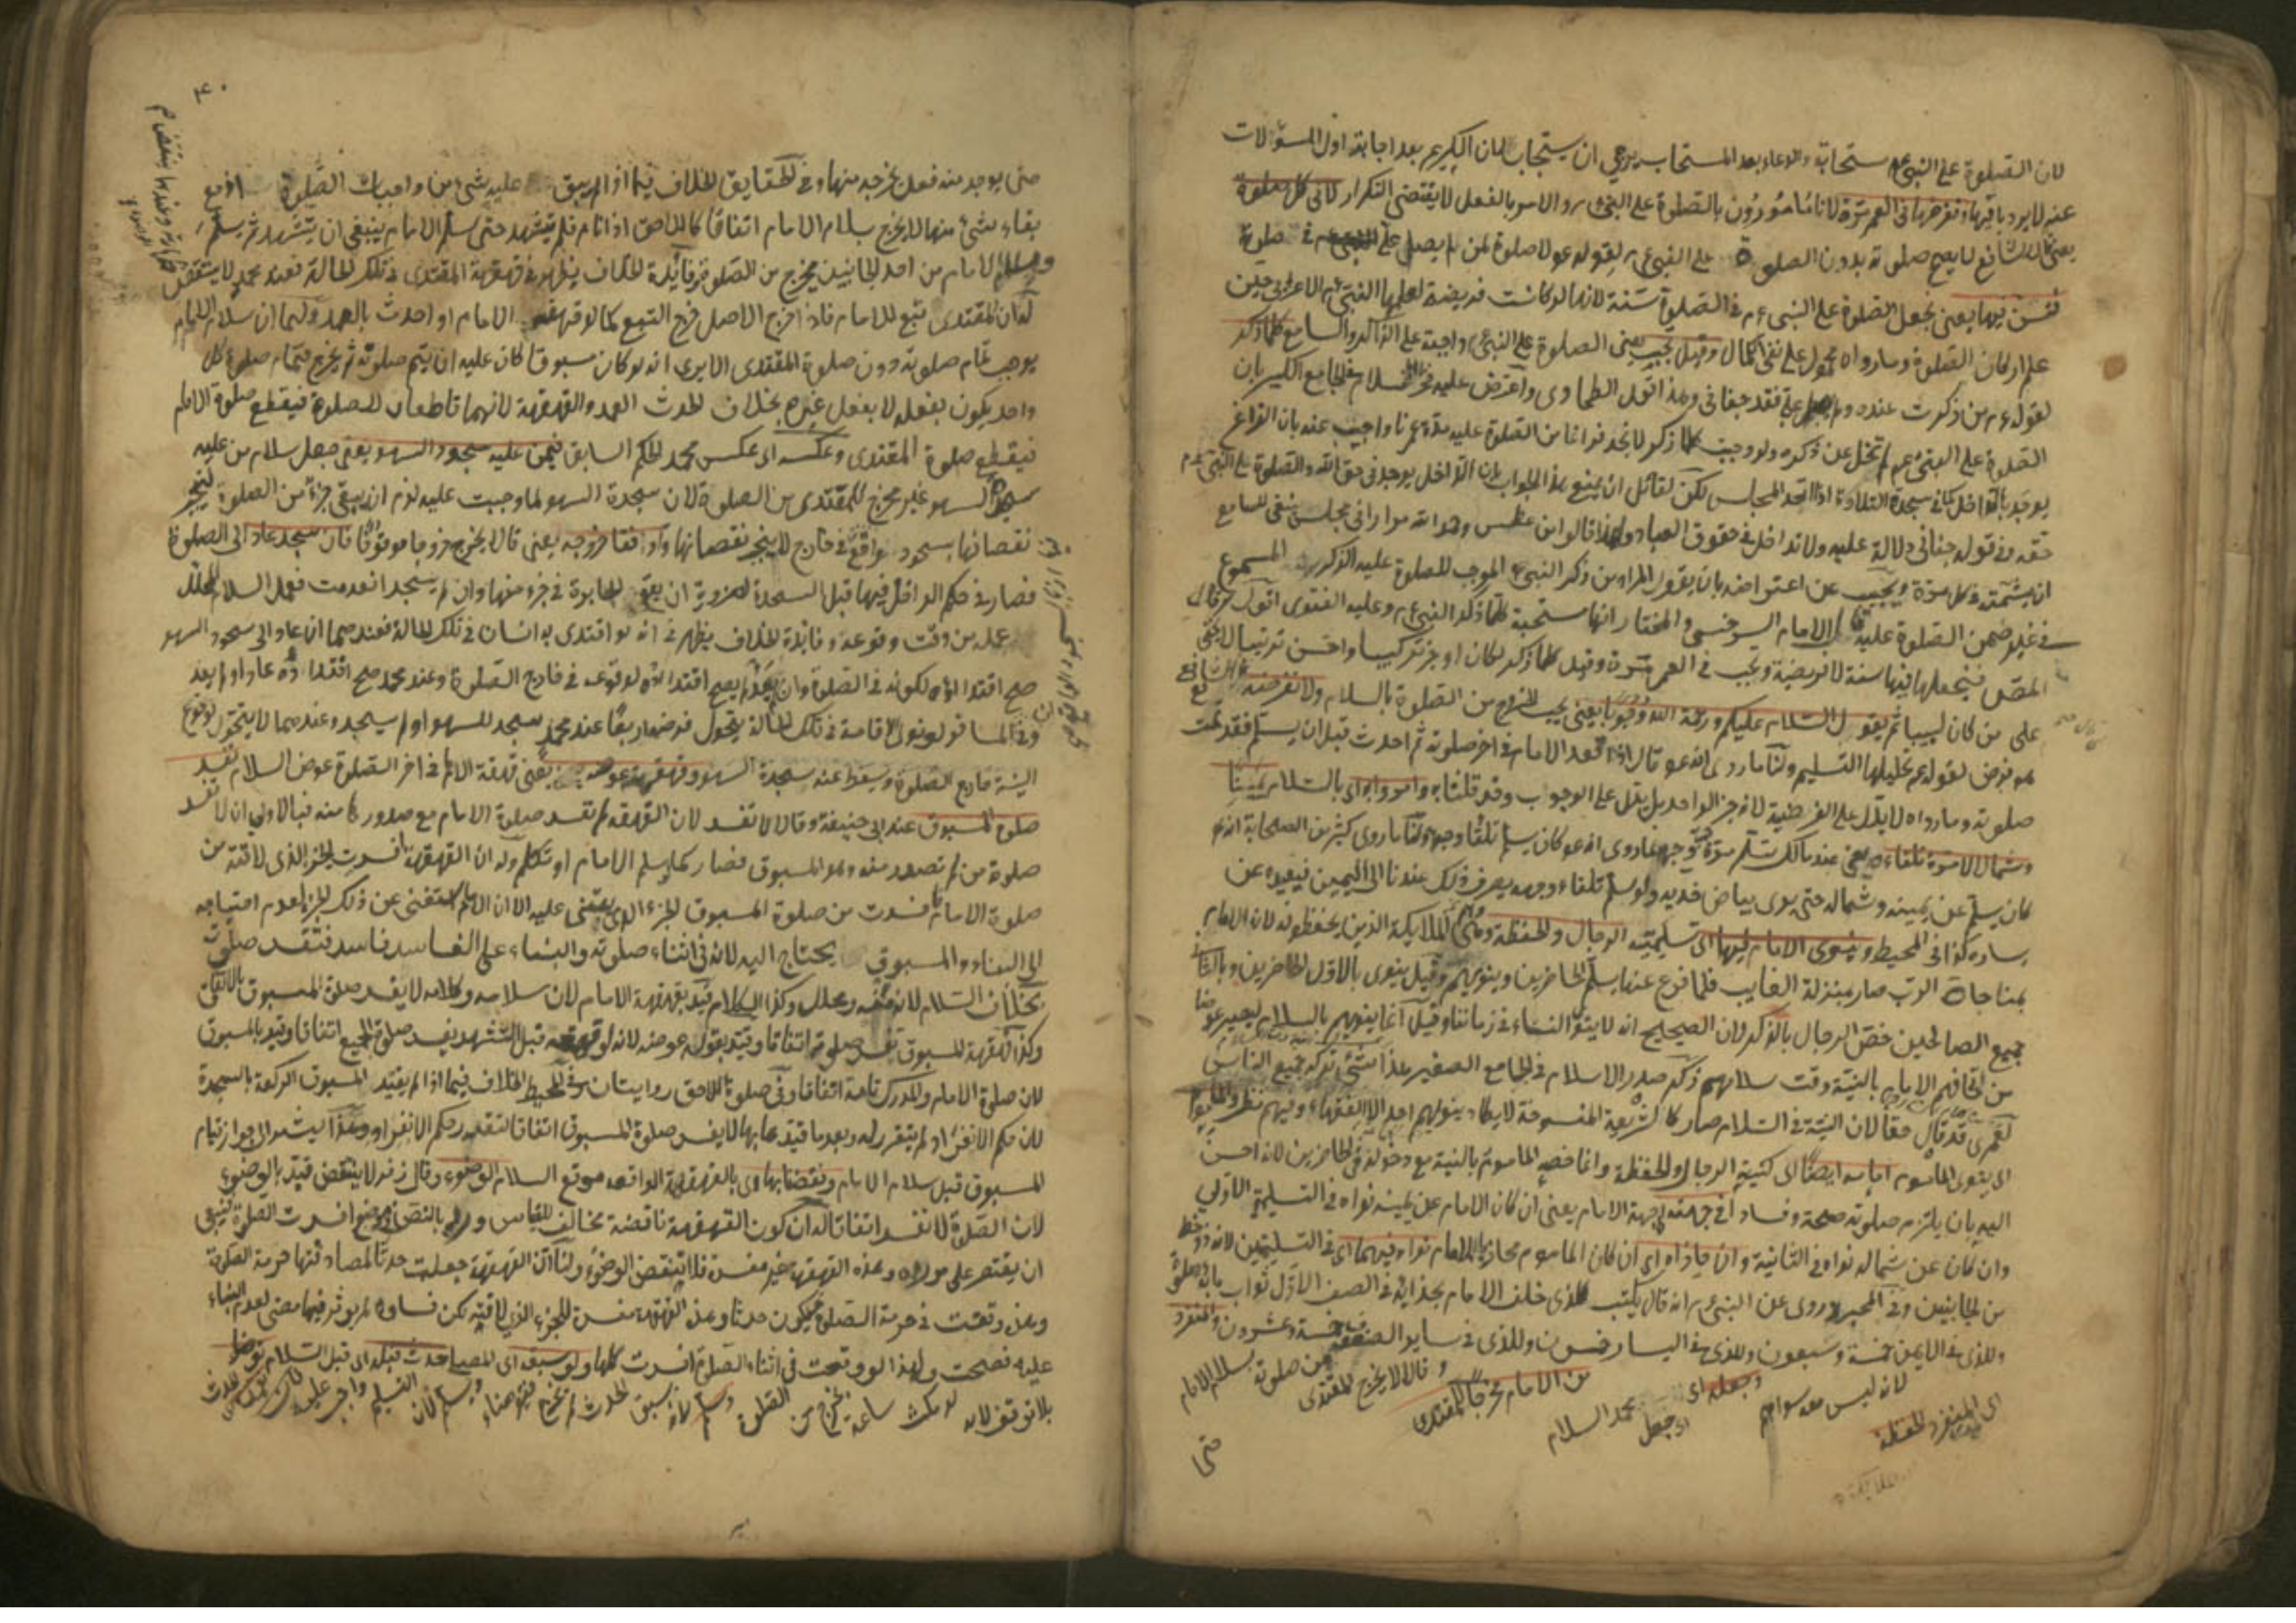 لان الصلوة على النبي عم مستجابة والدعاء بعد المستجاب يرجى ان يستجاب لان الكريم بعد اجابة اول المسؤلات
عنه لا يرد باقيها وفرضها في العمر مرة لانا مأمورون بالصلوة على النبي عم والامر بالفعل لا يقتضى التكرار لا في كل صلوة
يعنى قال الشافعى لا يصح صلوته بدون الصلوة على النبي عم لقوله عم لا صلوة لمن لم يصل على النبي عم في صلوته
فنسن فيها يعنى نجعل الصلوة على النبي عم في الصلوة سنة لانها لو كانت فريضة لعلمها النبي عم الاعرابي حين
علم اركان الصلوة وما رواه محمول على نفي الكمال وقيل تجب يعنى الصلوة على النبي عم واجبة على الذاكر والسامع كلما ذكر
لقوله عم من ذكرت عنده ولم يصل على فقد جفانى وهذا قول الطحاوى واعترض عليه فخر الاسلام في الجامع الكبير بان
الصلوة على النبي عم لم تخل عن ذكره ولو وجبت كلما ذكر لا نجد فراغا من الصلوة عليه مدة عمرنا واجيب عنه بان الفراغ
يوجد بالتداخل كما في سجدة التلاوة اذا اتحد المجلس لكن لقائل ان يمنع هذا الجواب بان التداخل يوجد في حق الله والصلوة على النبي عم
حقه وفي قوله جفانى دلالة عليه ولا تداخل في حقوق العباد ولهذا قالوا من عطس وحمد الله مرارا في مجلس ينبغى للسامع
ان يشمته في كل مرة ويجيب عن اعتراضه بان يقول المراد من ذكر النبي عم الموجب للصلوة عليه الذكر المسموع
في غير ضمن الصلوة عليه قال الامام السرخسى والمختار انها مستحبة كلما ذكر النبي عم وعليه الفتوى اقول لو قال
المصنف فنجعلها فيها سنة لا فريضة وتجب في العمر مرة وقيل كلما ذكر لكان اوجز تركيبا واحسن ترتيبا لا يخفى
على من كان لبيبا ثم يقول السلام عليكم ورحمة الله وجوبا يعنى يجب الخروج من الصلوة بالسلام ولا نفرضه قال الشافعى
هو فرض لقوله عم تحليلها التسليم ولنا ما روى انه عم قال اذا قعد الامام في اخر صلوته ثم احدث قبل ان يسلم فقد تمت
صلوته وما رواه لا يدل على الفرضية لانه خبر الواحد بل يدل على الوجوب وقد قلنا به وامروا به اى بالسلام يمينا
وشمالا لا مرة تلقاءه يعنى عند مالك يسلم مرة تلقاء وجهه لما روى انه عم كان يسلم تلقاء وجهه ولنا ما روى كثير من الصحابة انه عم
كان يسلم عن يمينه وشماله حتى يرى بياض خديه ولو سلم تلقاء وجهه يصرف ذلك عندنا الى اليمين فيعيده عن
يساره كذا في المحيط وينوى الامام فيها اى تسليمتيه الرجال والحفظة وهم الملائكة الذين يحفظونه لان الامام
بمناجاة الرب صار بمنزلة الغايب فلما فرغ عنها يسلم للحاضرين وينويهم وقيل ينوى بالاول الحاضرين وبالثانى
جميع الصالحين خص الرجال بالذكر لان الصحيح انه لا ينوى النساء في زماننا وقيل انما ينويهم بالسلام ليصير عوضا
من الامام بالنية وقت سلامهم ذكر صدر الاسلام في الجامع الصغير هذا شئ تركه جميع الناس
لعمرى قد قال حقا لان النية في السلام صار كالشريعة المنسوخة لا يكاد ينويهم احد الا الفقهاء وفيهم نظر والمأموم
اى ينوى المأموم امامه ايضا اى كنية الرجال والحفظة وانما خصه المأموم بالنية مع دخوله في الحاضرين لانه احسن
اليه بان يلتزم صلوته صحة وفسادا في جهته اى جهة الامام يعنى ان كان الامام عن يمينه نواه في التسليمة الاولى
وان كان عن شماله نواه في الثانية وان حاذاه اى ان كان المأموم محاذيا للامام نواه فيهما اى في التسليمتين لانه ذو حظ
من الجانبين وفي المحيط روى عن النبي عم انه قال يكتب للذى خلف الامام بحذائه في الصف الاول ثواب مائة صلوة
وللذى في الايمن خمسة وسبعون وللذى في اليسار خمسون وللذى في ساير الصفوف خمسة وعشرون والمنفرد
اى ينوى المنفرد الحفظة لانه ليس معه سواهم وجعله اى جعل محمد السلام من الامام مخرجا للمقتدى وقالا لا يخرج المقتدى من صلوته بسلام الامام
حتى
٤٠
حتى يوجد منه فعل يخرجه منها وفي الحقايق الخلاف فيما اذا لم يبق عليه شئ من واجبات الصلوة اذ مع
بقاء شئ منها لا يخرج بسلام الامام اتفاقا كاللاحق اذا نام فلم يتشهد حتى سلم الامام ينبغى ان يتشهد ثم يسلم
وسلام الامام من احد الجانبين مخرج من الصلوة وفائدة الخلاف يظهر في قهقهة المقتدى في تلك الحالة فعند محمد لا ينتقض
له ان المقتدى تبع للامام فاذا خرج الاصل خرج التبع كما لو قهقه الامام او احدث بالعمد ولهما ان سلام الامام
يوجب تمام صلوته دون صلوة المقتدى الا يرى انه لو كان مسبوقا كان عليه ان يتم صلوته ثم يخرج فتمام صلوة كل
واحد يكون بفعله لا بفعل غيره بخلاف الحدث العمد والقهقهة لانهما قاطعان للصلوة فيقطع صلوة الامام
فيقطع صلوة المقتدى وعكسه اى عكس محمد الحكم السابق فيمن عليه سجود السهو يعنى جعل سلام من عليه
سجود السهو غير مخرج للمقتدى من الصلوة لان سجدة السهو لما وجبت عليه لزم ان يبقى جزء من الصلوة لينجبر
نقصانها بسجود واقع في خارج لا ينجبر نقصانها وقالا يخرج خروجا موقوفا فان سجد عاد الى الصلوة
فصار في حكم الداخل فيها قبل السجدة لضرورة ان يقع الجابرة في جزء منها وان لم يسجد انعدمت فعمل السلام المحلل
عمله من وقت وقوعه وفائدة الخلاف يظهر في انه لو اقتدى به انسان في تلك الحالة فعندهما ان عاد الى سجود السهو
صح اقتداؤه لكونه في الصلوة وان لم يعد لم يصح اقتداؤه لوقوعه في خارج الصلوة وعند محمد صح اقتداؤه عاد او لم يعد
وفي المسافر لو نوى الاقامة في تلك الحالة يتحول فرضه اربعا عند محمد سجد للسهو او لم يسجد وعندهما لا يتحول لوقوع
النية خارج الصلوة ويسقط عنه سجدة السهو وقهقهته عوضه يعنى قهقهة الامام في اخر الصلوة عوض السلام تفسد
صلوة المسبوق عند ابى حنيفة وقالا لا تفسد لان القهقهة لم تفسد صلوة الامام مع صدورها منه فبالاولى ان لا تفسد
صلوة من لم تصدر منه وهو المسبوق فصار كما يسلم الامام او تكلم وله ان القهقهة افسدت الجزء الذى لاقته من
صلوة الامام فافسدت من صلوة المسبوق الجزء الذى يبتنى عليه الا ان الامام استغنى عن ذلك الجزء لعدم احتياجه
الى البناء والمسبوق يحتاج اليه لانه في اثناء صلوته والبناء على الفاسد فاسد فتفسد صلوته
بخلاف السلام لانه منه ومحلل وكذا الكلام قيد بقهقهة الامام لان سلامه وكلامه لا يفسد صلوة المسبوق بالاتفاق
وكذا قهقهة المسبوق تفسد صلوته اتفاقا وقيد بقوله عوضه لانه لو قهقه قبل التشهد يفسد صلوة الجميع اتفاقا وقيد بالمسبوق
لان صلوة الامام والمدرك تامة اتفاقا وفي صلوة اللاحق روايتان وفي المحيط الخلاف فيما اذا لم يقيد المسبوق الركعة بالسجدة
لان حكم الانفراد لم يتقرر له وبعد ما قيدها بها لا يفسد صلوة المسبوق اتفاقا لتقرر حكم الانفراد وهذا يشير الى جواز قيام
المسبوق قبل سلام الامام ونقضنا بها اى بالقهقهة الواقعة موقع السلام الوضوء وقال زفر لا ينتقض قيد بالوضوء
لان الصلوة لا تفسد اتفاقا له ان كون القهقهة ناقضة مخالف للقياس وورد بالنص في موضع افسدت الصلوة فينبغى
ان يقتصر على مورده وهذه القهقهة غير مفسدة فلا ينتقض الوضوء ولنا ان القهقهة جعلت حدثا لمصادفتها حرمة الصلوة
وهذه وقعت في حرمة الصلوة فيكون حدثا وهذه القهقهة مفسدة للجزء الذى لاقته لكن فساده لم يؤثر فيما مضى لعدم البناء
عليه فصحت ولهذا لو وقعت في اثناء الصلوة افسدت كلها ولو سبقه اى المصلى حدث قبله اى قبل السلام توضأ
بلا توقف لانه لو مكث ساعة يخرج من الصلوة وسلم لان سبق الحدث لم يخرج